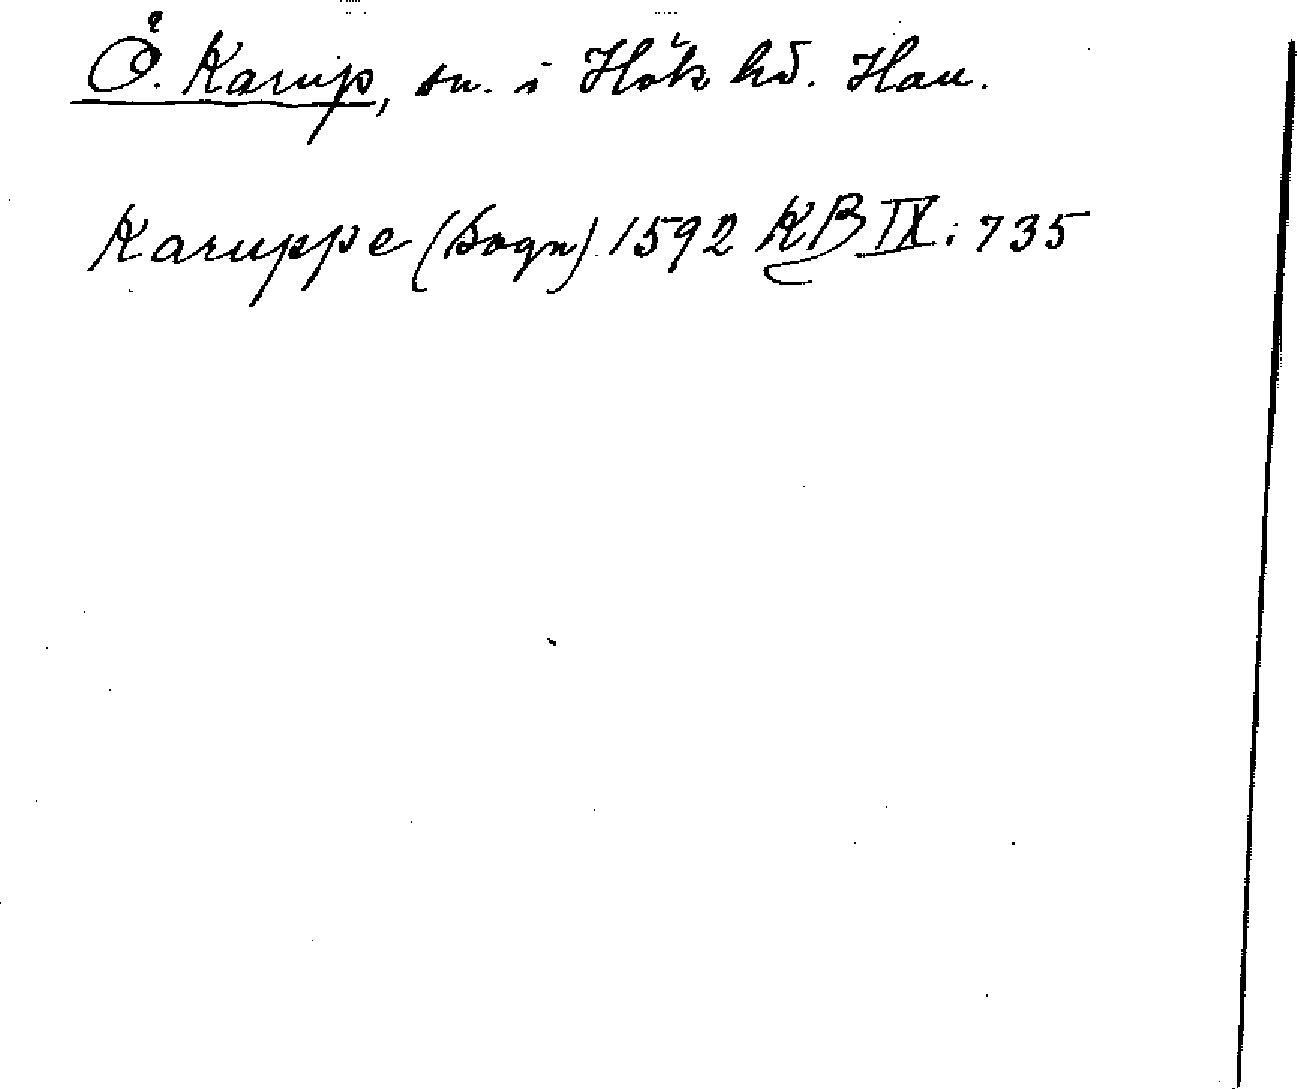 Ö. Karup, sn. i Höks hd. Hall.
Karuppe (Sogn) 1592 KB IX: 735